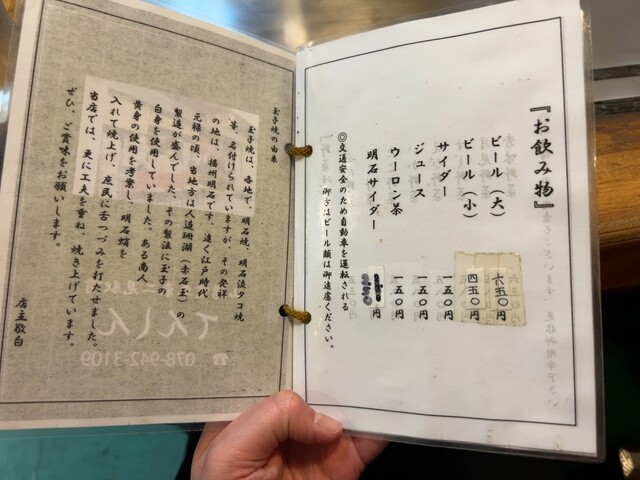 『お飲み物』
ビール（大） 六五〇円
ビール（小） 四五〇円
サイダー 一五〇円
ジュース 一五〇円
ウーロン茶 一五〇円
明石サイダー 円
◎交通安全のため自動車を運転される
御方はビール類は御遠慮ください。
玉子焼の由来
玉子焼は、各地で、明石焼、明石流タコ焼
等、名付けられていますが、その発祥
の地は、播州明石です。遠く江戸時代
元禄の頃、当地方は人造珊瑚（赤石玉）の
製造が盛んでした。その製法に玉子の
白身を使用していました。ある商人
黄身の使用を考案し、明石蛸を
入れて焼上げ、庶民に舌つづみを打たせました。
当店では、更に工夫を重ね、焼き上げています。
ぜひ、ご賞味をお願いします。
店主敬白
てんしん
☎078-942-3109